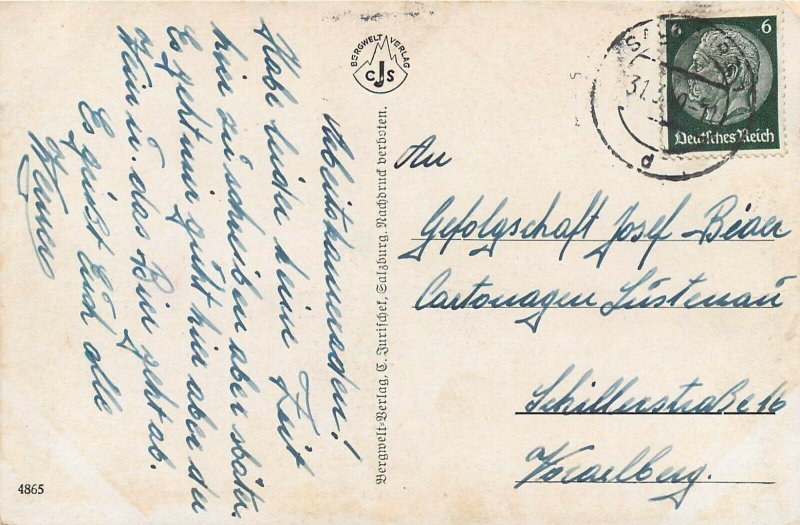 Arbeitskameraden!
Habe leider keine Zeit
hier zu schreiben aber später.
Es geht mir gut hier aber der
Wein u. das Bier geht ab.
Es grüßt Euch alle
Werner
BERGWELT VERLAG
CJS
Bergwelt-Verlag, C. Jurischek, Salzburg. Nachdruck verboten.
6 6
Deutsches Reich
31.3
d
An
Gefolgschaft Josef
Cartonagen Lustenau
Schillerstraße 16
Vorarlberg.
4865